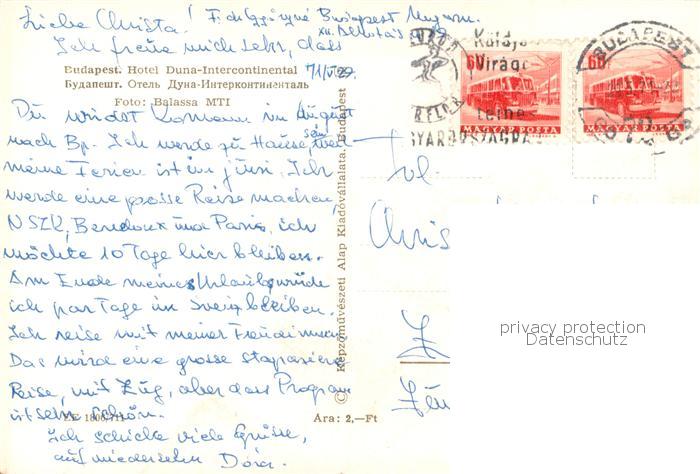 Liebe Christa! F. de Györgyné Budapest Ungarn.
XII.
Ich freue mich sehr, dass
71/V.29.
Budapest. Hotel Duna-Intercontinental
Будапешт. Отель Дуна-Интерконтиненталь
Foto: Balassa MTI
Du wirdst kommen im August
nach Bp. Ich werde zu Hause sein, weil
meine Ferien ist im Juni. Ich
werde eine grosse Reise machen,
NSZK, Benelux und Paris, ich
möchte 10 Tage hier bleiben.
Am Ende meines Urlaubs würde
ich par Tage in Sveiz bleiben.
Ich reise mit meiner Freundin
Das wird eine grosse strapaziere
Reise, mit Zug, aber das Program
ist sehr schön.
Ich schicke viele Grüsse,
auf wiedersehn Dóra.
EE 1806/711
Ara: 2,—Ft
© Képzőművészeti Alap Kiadóvállalata, Budapest
Küldj
Virágo
BUDAPEST
60
MAGYAR POSTA
60
MAGYAR POSTA
Chris
privacy protection
Datenschutz